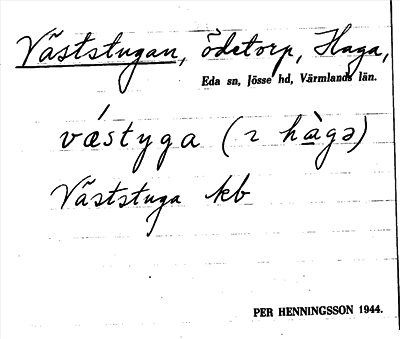 Väststugan, ödetorp, Haga,
Eda sn, Jösse hd, Värmlands län.
vǽstyga (2 hàgə)
Väststuga kb
PER HENNINGSSON 1944.